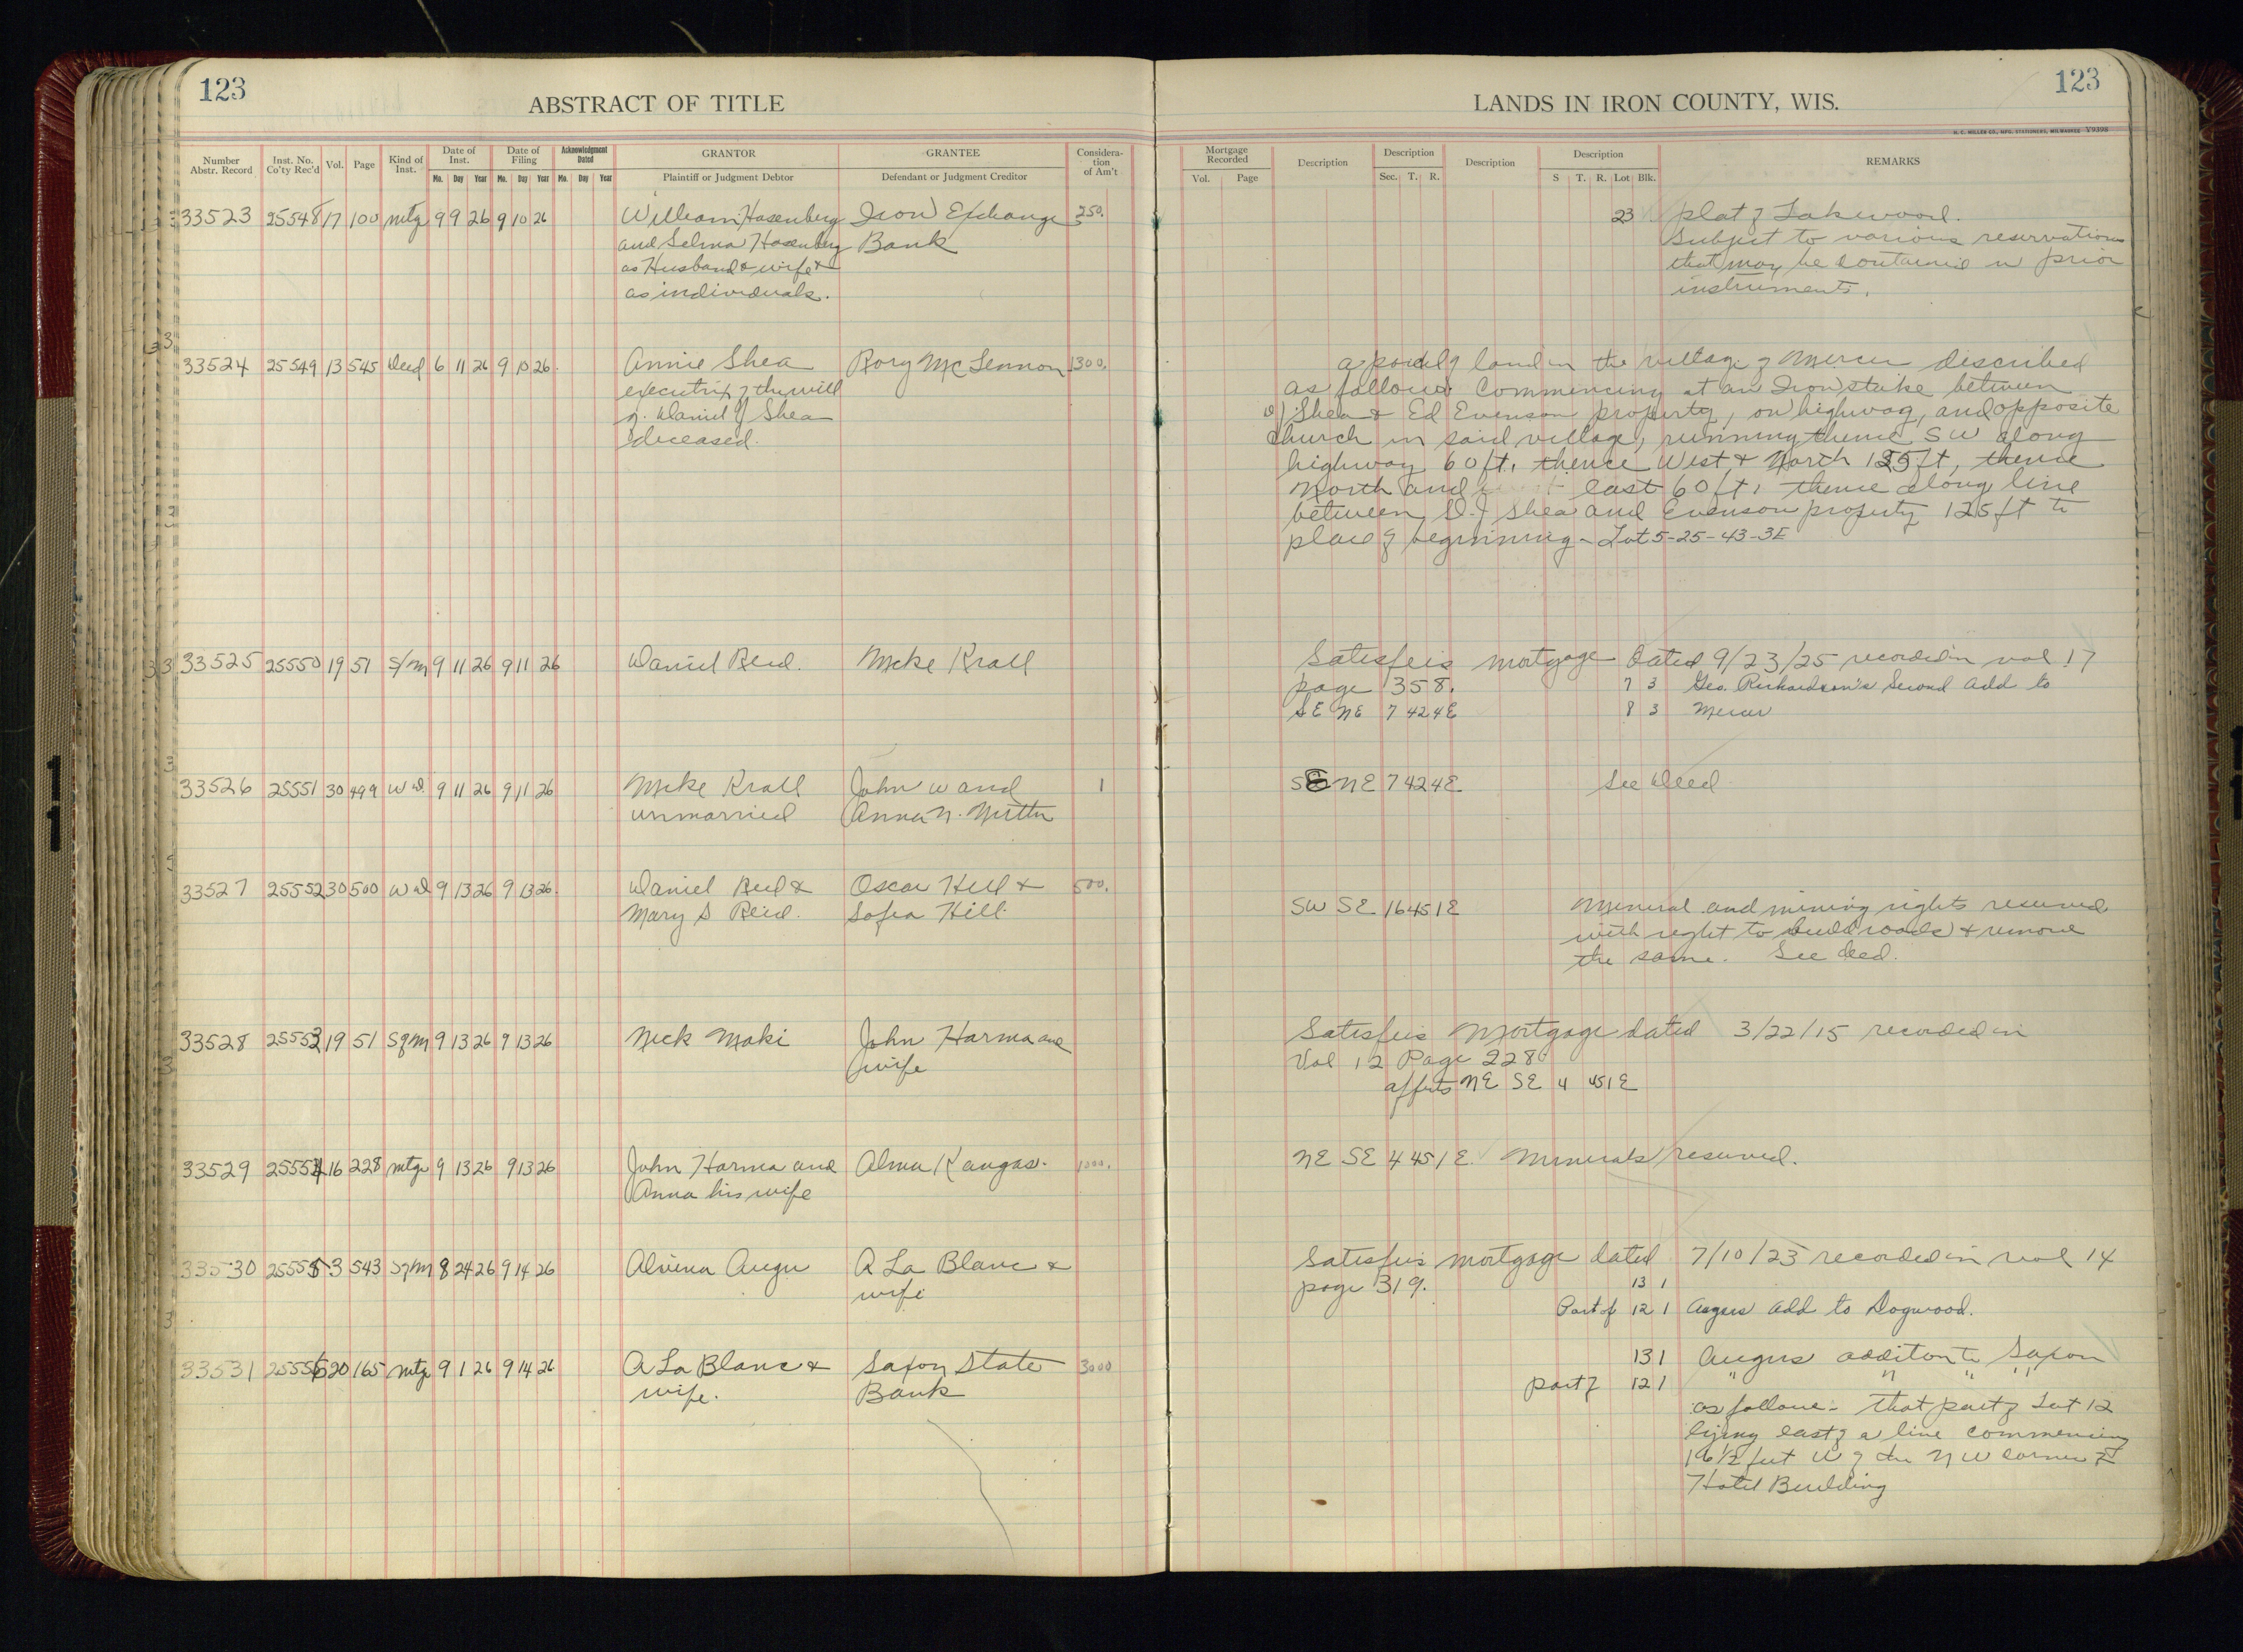 123
ABSTRACT OF TITLE
LANDS IN IRON COUNTY, WIS.
123
H. C. MILLER CO., MFG. STATIONERS, MILWAUKEE Y9398
Number Abstr. Record | Inst. No. Co'ty Rec'd | Vol. | Page | Kind of Inst. | Date of Inst. Mo. Day Year | Date of Filing Mo. Day Year | Acknowledgment Dated Mo. Day Year | GRANTOR Plaintiff or Judgment Debtor | GRANTEE Defendant or Judgment Creditor | Consideration of Am't
Mortgage Recorded Vol. Page | Description | Description Sec. T. R. | Description | Description S T. R. Lot Blk. | REMARKS
33523 25548 17 100 mtg 9 9 26 9 10 26 William Hasenberg Iron Exchange 250. 23 Plat of Lakewood.
and Selma Hasenberg Bank Subject to various reservations
as Husband & wife & that may be contained in prior
as individuals. instruments.
33524 25549 13 545 Deed 6 11 26 9 10 26. Annie Shea Rory McLennon 1300. a parcel of land in the village of Mercer described
executrix of the will as follows Commencing at an Iron stake between
of Daniel J Shea D J Shea & Ed Evenson property, on highway, and opposite
deceased. Church in said village, running thence SW along
highway 60 ft, thence West & North 125 ft, thence
North and east 60 ft, thence along line
between D. J Shea and Evenson property 125 ft to
place of beginning - Lot 5-25-43-3E
33525 25550 19 51 S/M 9 11 26 9 11 26 Daniel Reid. Mike Krall Satisfies mortgage Dated 9/23/25 recorded in vol 17
page 358. 7 3 Geo. Richardson's Second Add to
SE NE 7 42 4E 8 3 Mercer
33526 25551 30 499 W D. 9 11 26 9 11 26 Mike Krall John W and 1 SE NE 7 42 4E See Deed
unmarried Anna N.
33527 25552 30 500 W D 9 13 26 9 13 26. Daniel Reid & Oscar Hill & 500.
Mary S Reid. Sofia Hill. SW SE 16 45 1E Mineral and mining rights reserved
with right to build roads & remove
the same. See deed.
33528 25553 19 51 S of M 9 13 26 9 13 26 Nick Maki John Harma and Satisfies Mortgage dated 3/22/15 recorded in
wife Vol 12 Page 228
affects NE SE 4 45 1E
33529 25554 16 228 mtge 9 13 26 9 13 26 John Harma and Alma Kangas. 1000. NE SE 4 45 1E. Minerals reserved.
Anna his wife
33530 25555 3 543 S of M 8 24 26 9 14 26 Alvina A La Blanc & Satisfies mortgage dated 7/10/23 recorded in vol 14
wife page 319. 13 1
Part of 12 1 Add to Dogwood.
33531 25556 20 165 mtg 9 1 26 9 14 26 A La Blanc & Saxon State 3000 13 1 addition to Saxon
wife. Bank part of 12 1 " " " "
as follows - that part of Lot 12
lying east of a line commencing
16 1/2 feet W of the NW corner of
Hotel Building